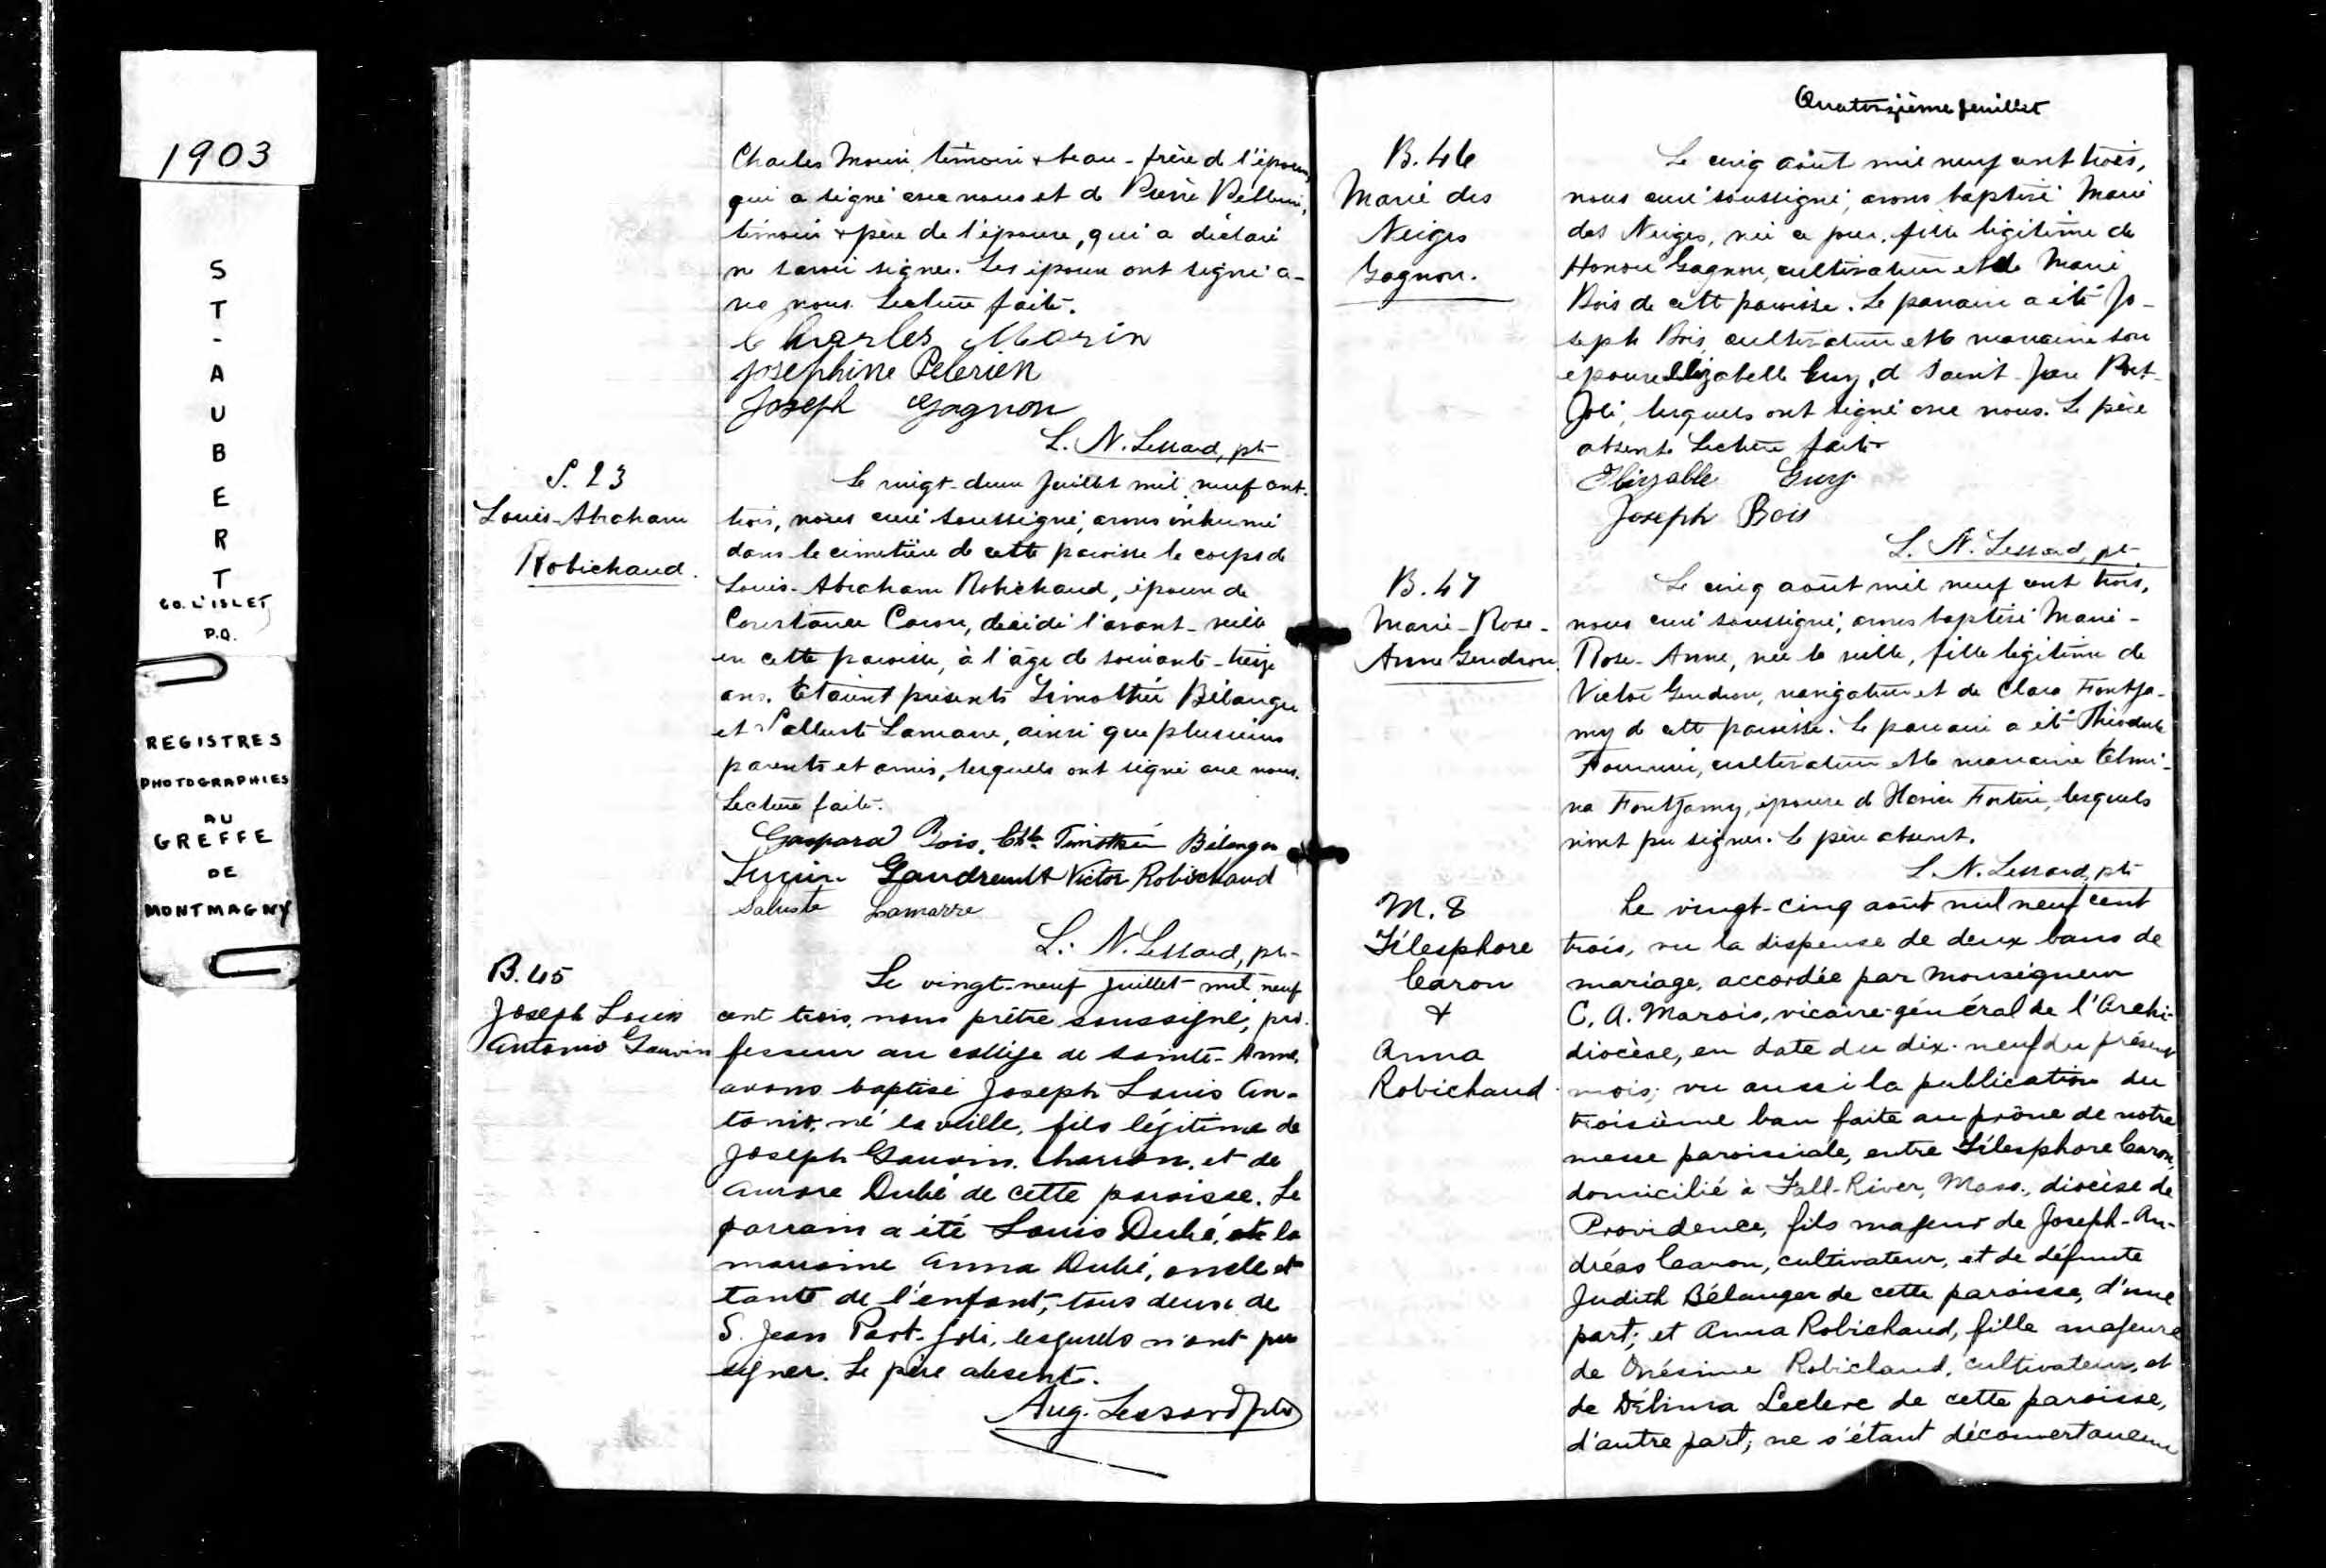 1903
S
T
-
A
U
B
E
R
T
CO. L'ISLET
P.Q.
REGISTRES
PHOTOGRAPHIES
AU
GREFFE
DE
MONTMAGNY
Charles Morin, témoin & beau-frère de l'époux,
qui a signé avec nous et de Pierre Pellerin,
témoin & père de l'épouse, qui a déclaré
ne savoir signer. Les époux ont signé a-
vec nous. Lecture faite.
Charles Morin
Josephine Pelerien
Joseph Gagnon
L. N. Lessard, ptr
S. 23
Louis-Abraham
Robichaud.
Le vingt-deux Juillet mil neuf cent
trois, nous curé soussigné, avons inhumé
dans le cimetière de cette paroisse le corps de
Louis-Abraham Robichaud, époux de
Constance Caron, décédé l'avant-veille
en cette paroisse, à l'âge de soixante-treize
ans. Etaient présents Timothée Bélanger
et Salluste Lamarre, ainsi que plusieurs
parents et amis, lesquels ont signé avec nous.
Lecture faite.
Gaspard Bois, Timothé Bélanger
Gaudreault Victor Robichaud
Saluste Lamarre
L. N. Lessard, ptr
B. 45
Joseph Louis
Antonio Gauvin
Le vingt-neuf juillet mil neuf
cent trois, nous prêtre soussigné, pro-
fesseur au collège de Sainte-Anne,
avons baptisé Joseph Louis An-
tonio, né la veille, fils légitime de
Joseph Gauvin, charron, et de
Aurore Dubé de cette paroisse. Le
parrain a été Louis Dubé, et la
marraine Anna Dubé, oncle et
tante de l'enfant, tous deux de
S. Jean Port-Joli, lesquels n'ont pu
signer. Le père absent.
Aug. Lessard ptr
Quatorzième feuillet
B. 46
Marie des
Neiges
Gagnon.
Le cinq août mil neuf cent trois,
nous curé soussigné, avons baptisé Marie
des Neiges, née ce jour, fille légitime de
Honoré Gagnon, cultivateur et de Marie
Bois de cette paroisse. Le parrain a été Jo-
seph Bois, cultivateur et la marraine son
épouse Elizabelle Guy, de Saint-Jean Port-
Joli, lesquels ont signé avec nous. Le père
absent. Lecture faite
Elizable Guy
Joseph Bois
L. N. Lessard, ptr
B. 47
Marie-Rose-
Anne Gendron.
Le cinq août mil neuf cent trois,
nous curé soussigné, avons baptisé Marie-
Rose-Anne, née la veille, fille légitime de
Victor Gendron, navigateur et de Clara Fontja-
my de cette paroisse. Le parrain a été Théodule
Fournier, cultivateur et la marraine Elmi-
na Fontjamy, épouse de Fortin, lesquels
n'ont pu signer. Le père absent.
L. N. Lessard, ptr
M. 8
Télesphore
Caron
&
Anna
Robichaud
Le vingt-cinq août mil neuf cent
trois, vu la dispense de deux bans de
mariage, accordée par Monseigneur
C. A. Marois, vicaire-général de l'Archi-
diocèse, en date du dix-neuf du présent
mois; vu aussi la publication du
troisième ban faite au prône de notre
messe paroissiale, entre Télesphore Caron,
domicilié à Fall-River, Mass., diocèse de
Providence, fils majeur de Joseph-An-
dréas Caron, cultivateur, et de défunte
Judith Bélanger de cette paroisse, d'une
part; et Anna Robichaud, fille majeure
de Onésime Robichaud, cultivateur, et
de Délima Leclerc de cette paroisse,
d'autre part; ne s'étant découvert aucun